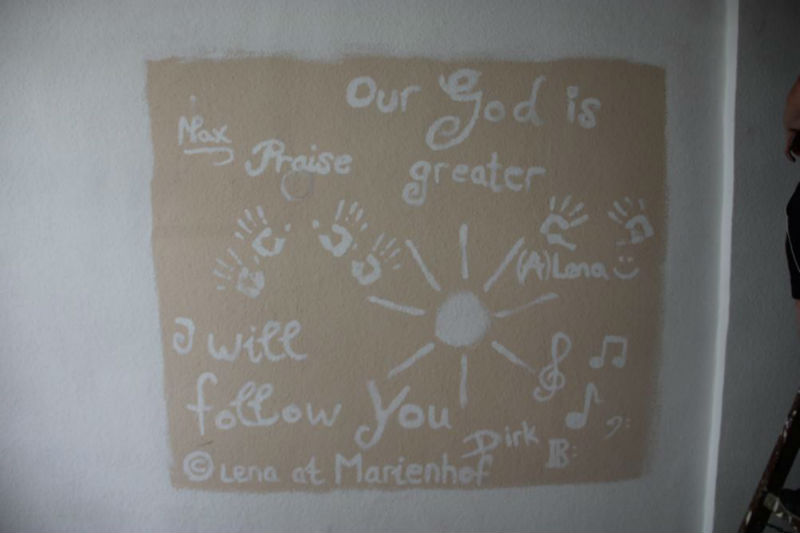 Our God is
greater
Max
Praise
(A)Lena :)
I will
follow You
Dirk
© Lena at Marienhof